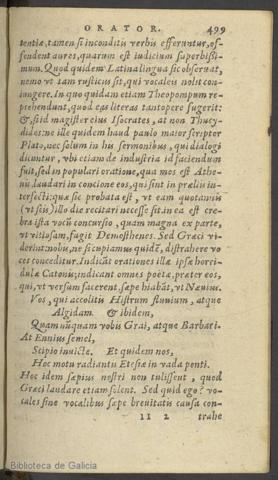 ORATOR. 499
tentiæ, tamen si inconditis verbis efferuntur, of-
fendent aures, quarum est iudicium superbissi-
mum. Quod quidem Latina lingua sic obseruat,
nemo vt tam rusticus sit, qui vocaleis nolit con-
iungere. In quo quidam etiam Theopompum re-
prehendunt, quod eas literas tantopere fugerit:
&, si id magister eius Isocrates, at non Thucy-
dides: ne ille quidem haud paulo maior scriptor
Plato, nec solum in his sermonibus, qui dialogi
dicuntur, vbi etiam de industria id faciendum
fuit, sed in populari oratione, qua mos est Athe-
nis laudari in concione eos, qui sint in præliis in-
terfecti: quæ sic probata est, vt eam quotannis
(vt scis) illo die recitari necesse sit. in ea est cre-
bra ista vocũ concursio, quam magna ex parte,
vt vitiosam, fugit Demosthenes. Sed Græci vi-
derint: nobis, ne si cupiamus quidẽ, distrahere vo
ces conceditur. Indicãt orationes illæ ipsæ horri-
dulæ Catonis; indicant omnes poëtæ, præter eos,
qui, vt versum facerent, sæpe hiabãt, vt Næuius.
Vos, qui accolitis Histrum fluuium, atque
Algidam. & ibidem,
Quam nũquam vobis Grai, atque Barbari.
At Ennius semel,
Scipio inuicte. Et quidem nos,
Hoc motu radiantis Etesiæ in vada ponti.
Hoc idem sæpius nostri non tulissent, quod
Græci laudare etiam solent. Sed quid ego? vo-
cales sine vocalibus sæpe breuitatis causa con-
II 2 trahe
Biblioteca de Galicia